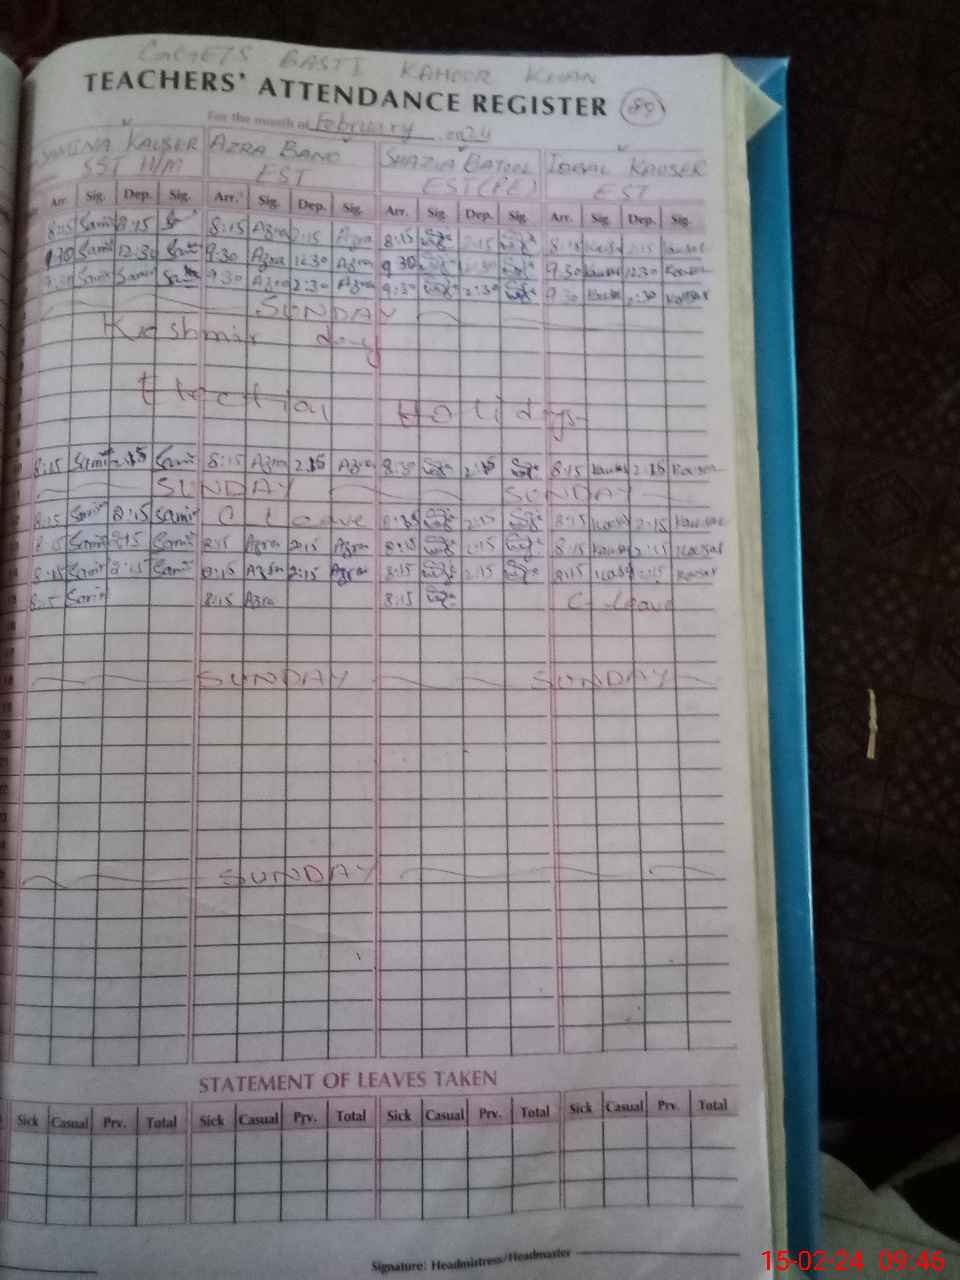 BASTI KAHOOR KHAN
TEACHERS' ATTENDANCE REGISTER 89
For the month of February 2024
SAMINA KAUSER AZRA BANO SHAZIA BATOOL IQBAL KAUSER
SST H/M EST EST(PE) EST
Arr. Sig. Dep. Sig. Arr. Sig. Dep. Sig. Arr. Sig. Dep. Sig. Arr. Sig. Dep. Sig.
8:15 Sami 2:15 8:15 Azra 2:15 Azra 8:15 2:15 8:15 Kausar 2:15 Kausar
9:30 Sami 12:30 Sami 9:30 Azra 12:30 Azra 9:30 12:30 9:30 Kausar 12:30 Kausar
9:30 Sami Sami Sami 9:30 Azra 2:30 Azra 9:30 2:30 9:30 2:30 Kausar
SUNDAY
Kashmir day
Election Holidays
8:15 Sami 2:15 Sami 8:15 Azra 2:15 Azra 8:30 2:15 8:15 Kausar 2:15 Kausar
SUNDAY SUNDAY
8:15 Samin 2:15 Samin C Leave 2:15 8:15 Kausar 2:15 Kausar
8:15 Sami 2:15 Sami 8:15 Azra 2:15 Azra 8:15 2:15 8:15 Kausar 2:15 Kausar
8:15 Samin 2:15 Sami 8:15 Azra 2:15 Azra 8:15 2:15 8:15 Kausar 2:15 Kausar
8:15 Samin 8:15 Azra 8:15 C- Leave
SUNDAY SUNDAY
SUNDAY
STATEMENT OF LEAVES TAKEN
Sick Casual Prv. Total Sick Casual Prv. Total Sick Casual Prv. Total Sick Casual Prv. Total
Signature: Headmistress/Headmaster
15-02-24 09:46